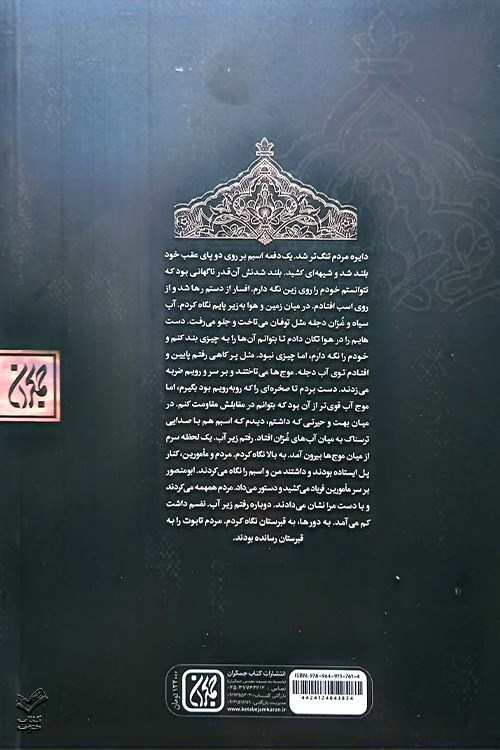 دایره مردم تنگ‌تر شد. یک‌دفعه اسبم بر روی دو پای عقب خود
بلند شد و شیهه‌ای کشید. بلند شدنش آن‌قدر ناگهانی بود که
نتوانستم خودم را روی زین نگه دارم. افسار از دستم رها شد و از
روی اسب افتادم. در میان زمین و هوا به زیر پایم نگاه کردم. آب
سیاه و غُرّان دجله مثل توفان می‌تاخت و جلو می‌رفت. دست
هایم را در هوا تکان دادم تا بتوانم آن‌ها را به چیزی بند کنم و
خودم را نگه دارم، اما چیزی نبود. مثل پر کاهی رفتم پایین و
افتادم توی آب دجله. موج‌ها می‌تاختند و بر سر و رویم ضربه
می‌زدند. دست بردم تا صخره‌ای را که روبه‌رویم بود بگیرم، اما
موج آب قوی‌تر از آن بود که بتوانم در مقابلش مقاومت کنم. در
میان بهت و حیرتی که داشتم، دیدم که اسبم هم با صدایی
ترسناک به میان آب‌های غُرّان افتاد. رفتم زیر آب. یک لحظه سرم
از میان موج‌ها بیرون آمد. به بالا نگاه کردم. مردم و مأمورین، کنار
پل ایستاده بودند و داشتند من و اسبم را نگاه می‌کردند. ابومنصور
بر سر مأمورین فریاد می‌کشید و دستور می‌داد. مردم همهمه می‌کردند
و با دست مرا نشان می‌دادند. دوباره رفتم زیر آب. نفسم داشت
کم می‌آمد. به دورها، به قبرستان نگاه کردم. مردم تابوت را به
قبرستان رسانده بودند.
جمکران
انتشارات کتاب جمکران
(وابسته به مسجد مقدس جمکران)
تماس: ۰۲۵-۳۷۷۳۴۲۱۲
www.ketabejamkaran.ir
ISBN: 978-964-973-761-4
جمکران
۱۳۴۰۰۰ تومان